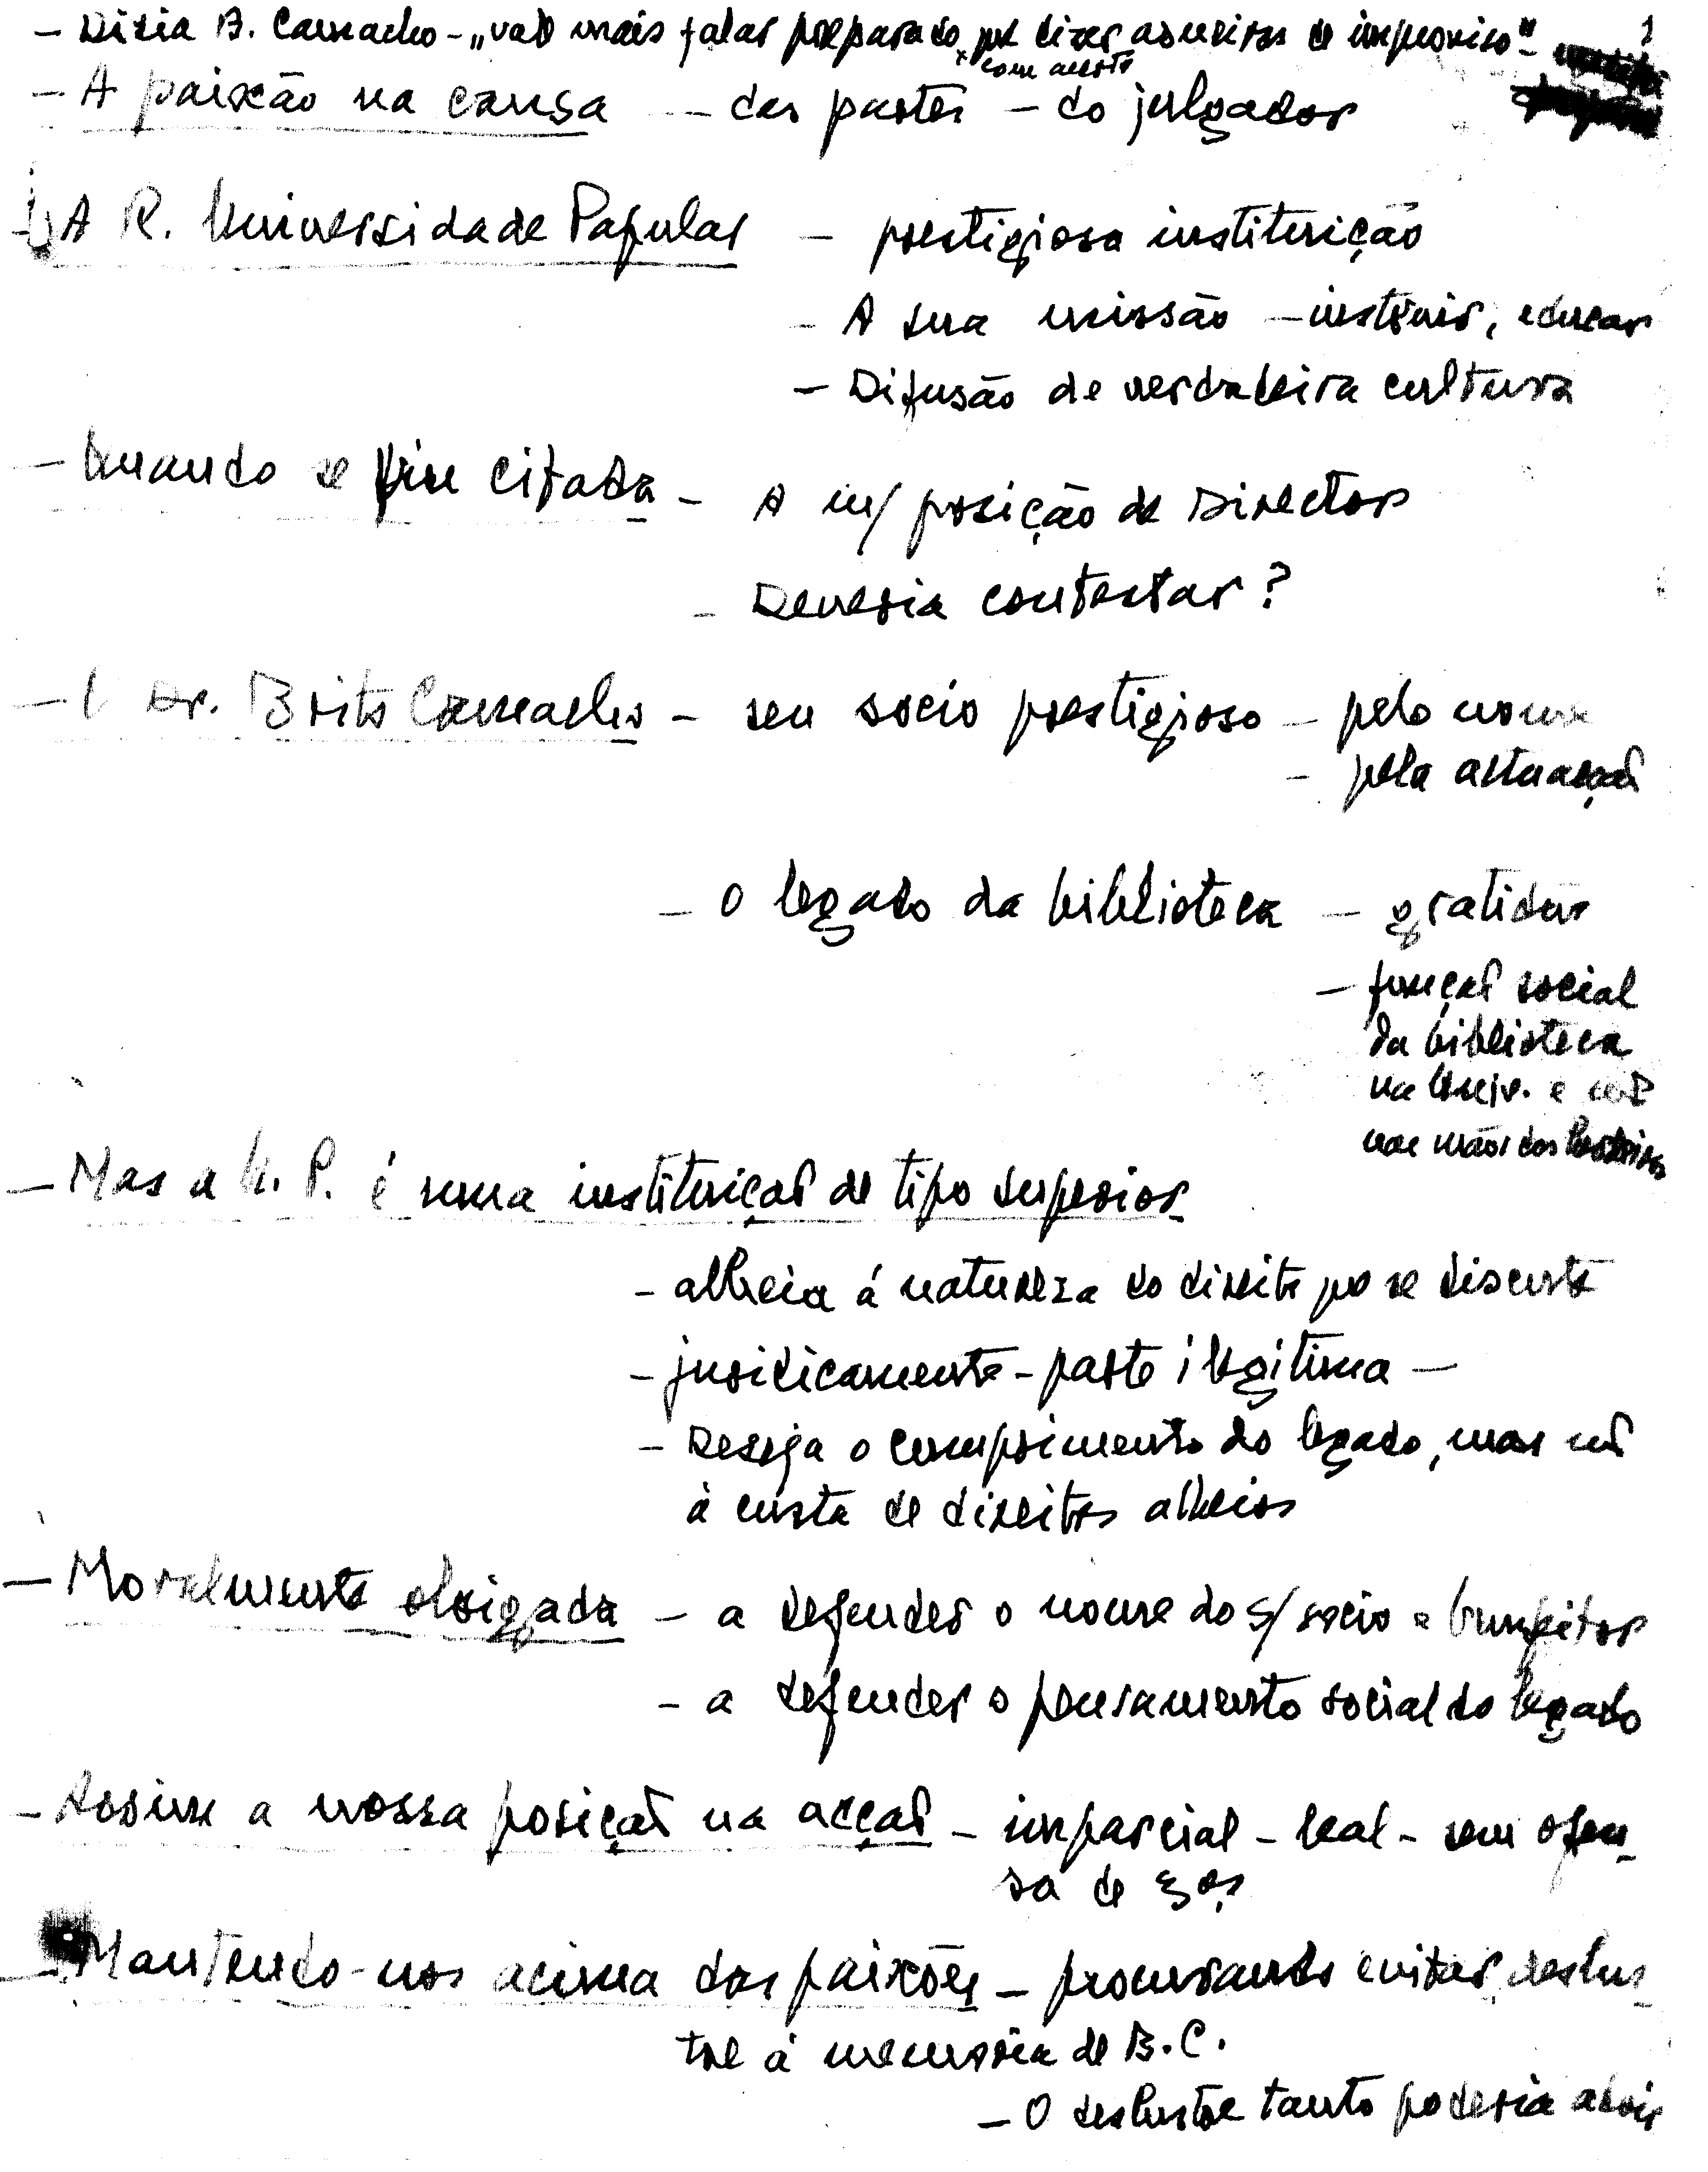 1
– Dizia B. Camacho – „vale mais falar preparado que dizer asneiras de improviso"
com acerto
– A paixão na causa – das partes – do julgador
– A R. Universidade Popular – prestigiosa instituição
– A sua missão – instruir, educar
– Difusão de verdadeira cultura
– Quando se viu citada – A m/ posição de Director
– Deveria contestar?
– O Dr. Brito Camacho – seu socio prestigioso – pelo nome
– pela actuação
– O legado da biblioteca – gratidão
– função social
da biblioteca
na Univ. e não
nas mãos dos
– Mas a U. P. é uma instituição de tipo superior
– alheia á natureza do direito que se discute
– juridicamente – parte ilegitima –
– Deseja o cumprimento do legado, mas não
à custa de direitos alheios
– Moralmente obrigada – a defender o nome do s/ socio e bemfeitor
– a defender o pensamento social do legado
– Assim a nossa posição na acção – imparcial – leal – sem ofen-
sa de
– Mantendo-nos acima das paixões – procurando evitar deslus-
tre á memória de B. C.
– O deslustre tanto poderia advir